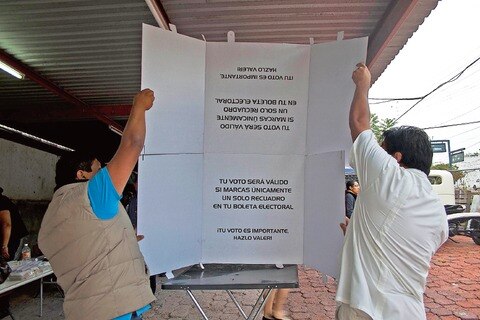 ¡TU VOTO ES IMPORTANTE,
HAZLO VALER!
TU VOTO SERÁ VÁLIDO
SI MARCAS ÚNICAMENTE
UN SOLO RECUADRO
EN TU BOLETA ELECTORAL
TU VOTO SERÁ VÁLIDO
SI MARCAS ÚNICAMENTE
UN SOLO RECUADRO
EN TU BOLETA ELECTORAL
¡TU VOTO ES IMPORTANTE,
HAZLO VALER!